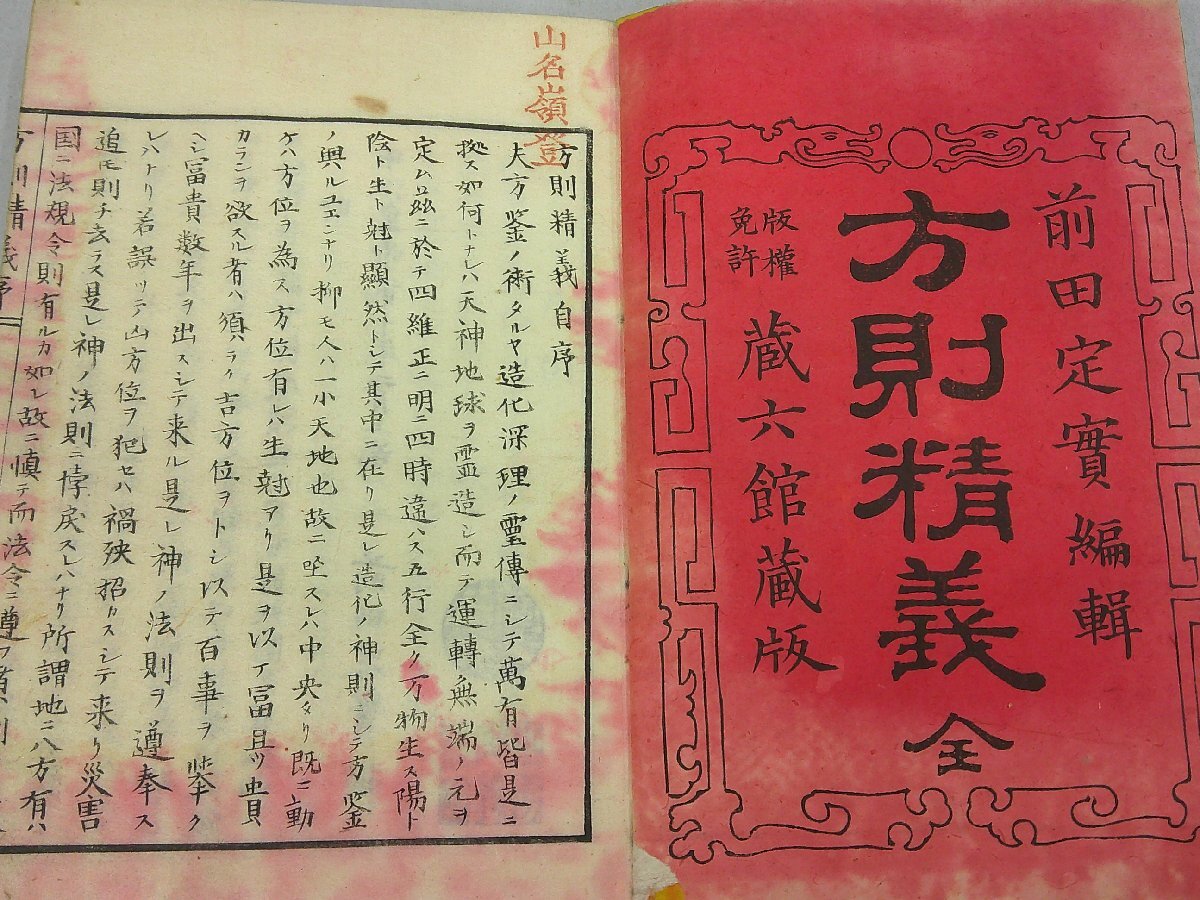 前田定實編輯
方則精義 全
版權免許
蔵六館蔵版
山名嶺登
方則精義自序
大方鉴ノ術タルヤ造化深理ノ靈傳ニシテ萬有皆是ニ
拠ス如何トナレハ天神地球ヲ靈造シ而テ運轉無端ノ元ヲ
定ム玆ニ於テ四維正ニ明ニ四時違ハス五行全ク万物生ス陽ト
陰ト生ト尅ト顯然トシテ其中ニ在リ是レ造化ノ神則ニシテ方鉴
ノ興ルユエンナリ抑モ人ハ一小天地也故ニ坐スレハ中央タリ既ニ動
ケハ方位ヲ為ス方位有レハ生尅アリ是ヲ以テ冨且ツ貴
カランヲ欲スル者ハ須ラク吉方位ヲトシ以テ百事ヲ挙ク
ヘシ冨貴数年ヲ出スシテ来ル是レ神ノ法則ヲ遵奉ス
レハナリ若誤リテ凶方位ヲ犯セハ禍殃招カスシテ来リ災害
追モ則チ去ラス是レ神ノ法則ニ悖戻スレハナリ所謂地ニ八方有ハ
国ニ法規令則有ルカ如レ故ニ慎テ而法令ニ遵フ
方則精義序